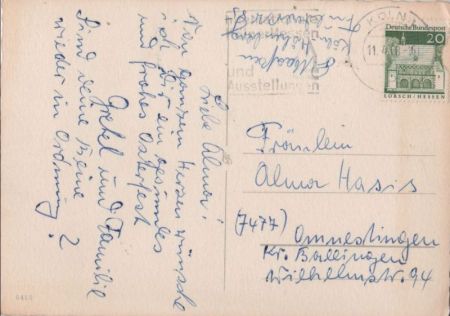 Liebe Alma!
Von ganzem Herzen wünsche
ich Dir ein gesundes
und frohes Osterfest
Gretel und Familie
Sind deine Beine
wieder in Ordnung?
Köln
und
Ausstellungen
KÖLN
11.4.68
Deutsche Bundespost
20
LORSCH/HESSEN
Fräulein
Alma Hasis
(7477) Onnestingen
Kr. Ballingen
Wilhelmstr. 94